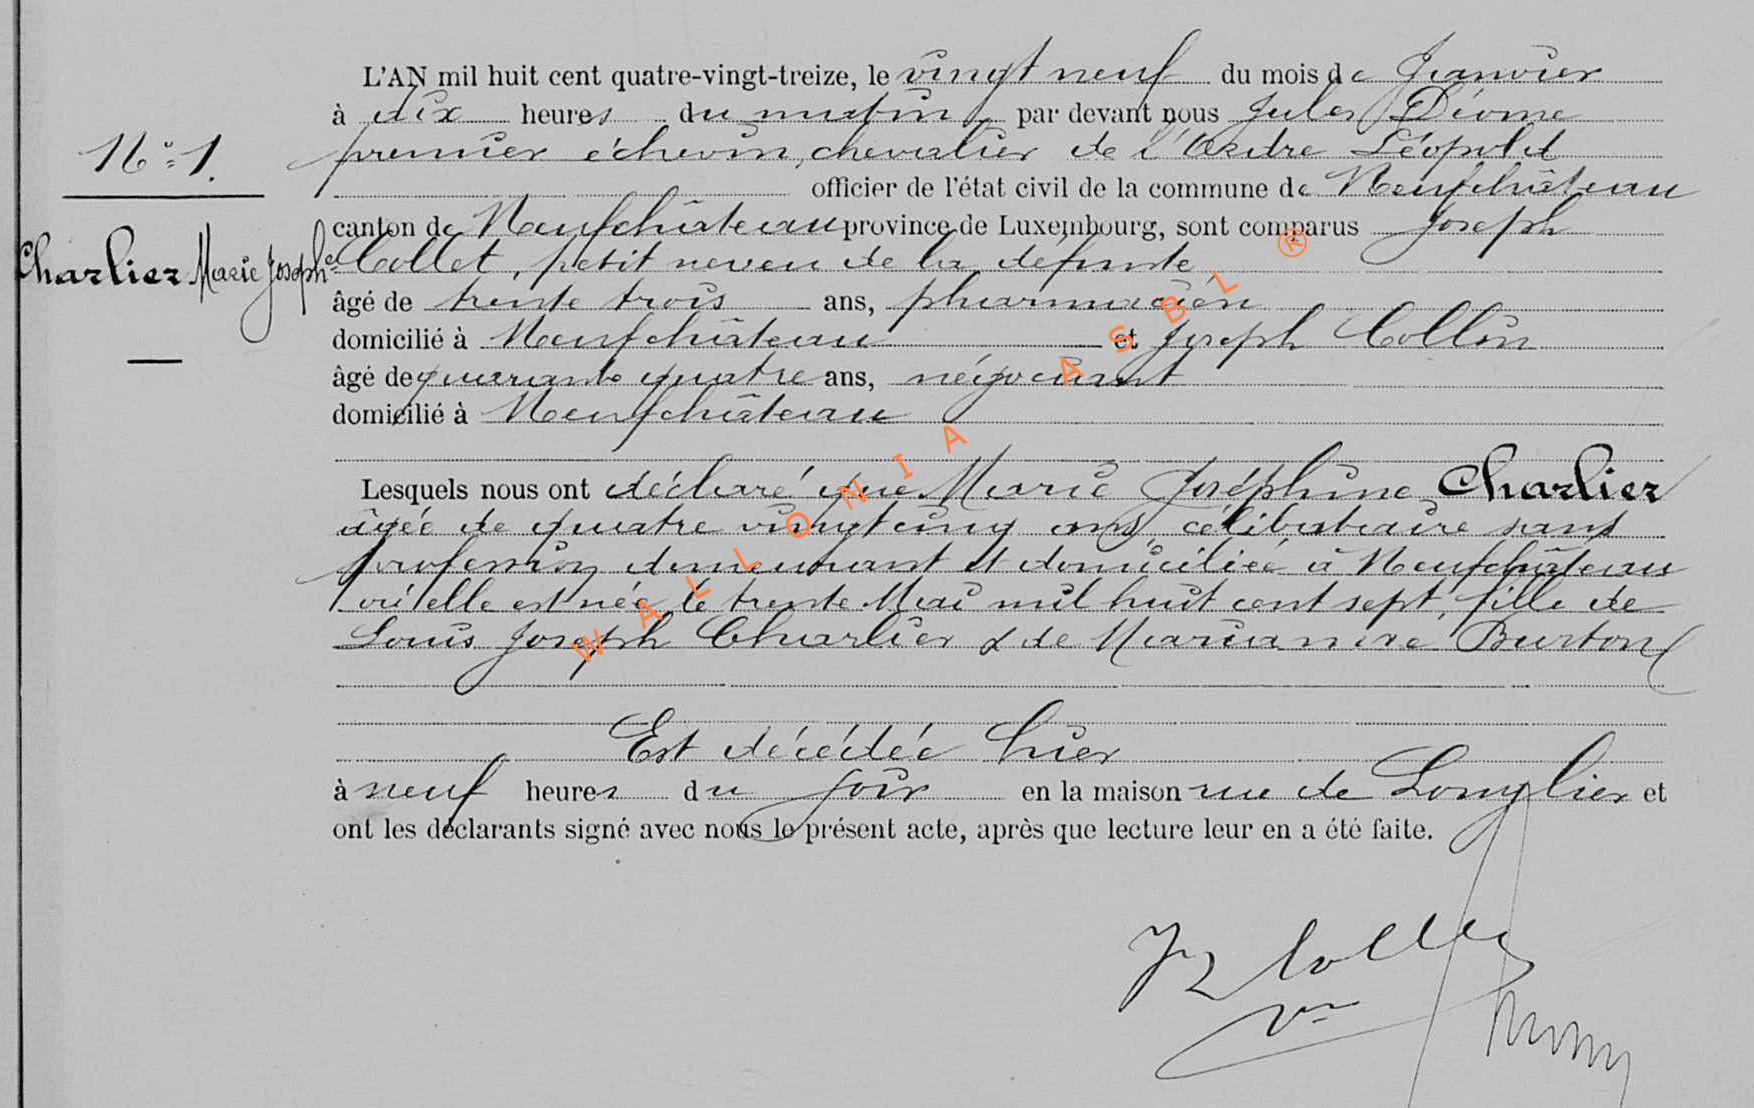 L'AN mil huit cent quatre-vingt-treize, le vingt neuf du mois de Janvier
à dix heures du matin par devant nous Jules Déome
N° 1. premier échevin, chevalier de l'Ordre Léopold
officier de l'état civil de la commune de Neufchâteau
canton de Neufchâteau province de Luxembourg, sont comparus Joseph
Charlier Marie Josephe Collet, petit neveu de la défunte
âgé de trente trois ans, pharmacien
domicilié à Neufchâteau et Joseph Collin
âgé de quarante quatre ans, négociant
domicilié à Neufchâteau
Lesquels nous ont déclaré que Marie Joséphine Charlier
âgée de quatre vingt cinq ans, célibataire sans
profession demeurant et domiciliée à Neufchâteau
où elle est née le trente Mai mil huit cent sept, fille de
Louis Joseph Charlier & de Marianne Burton
Est décédée hier
à neuf heures du soir en la maison rue de Longlier et
ont les déclarants signé avec nous le présent acte, après que lecture leur en a été faite.
Collet
WALLONIA ASBL ®